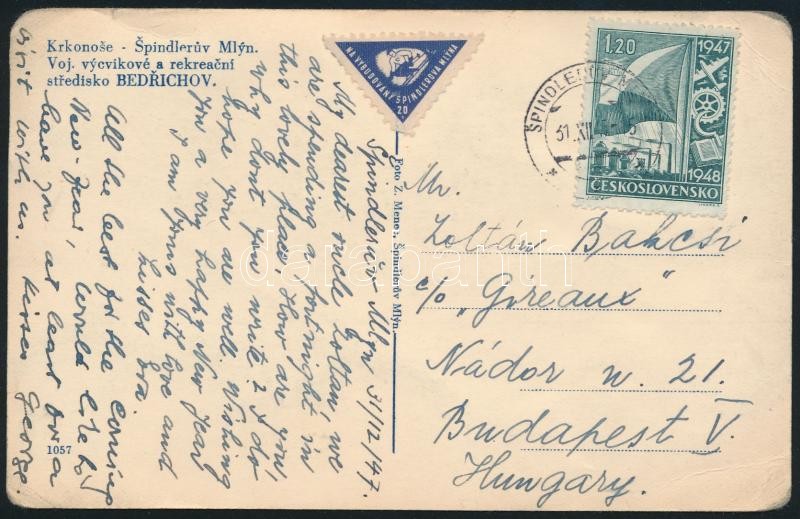 Krkonoše - Špindlerův Mlýn.
Voj. výcvikové a rekreační
středisko BEDŘICHOV.
NA VYBUDOVÁNÍ ŠPINDLEROVA MLÝNA
20
1.20 1947
1948
ČESKOSLOVENSKO
ŠPINDLERŮV M
31.XII.
Špindlerův Mlýn 31/12/47.
My dearest uncle Zoltan, we
are spending a fortnight in
this lovely place. How are you,
why dont you write? I do
hope you are well. Wishing
You a very happy New Year
I am yours with love and
kisses Eva
All the best for the coming
New-Year, would like to
have you at least for a
visit with us. Kisses
George.
Mr.
Zoltán Bakcsi
c/o „Gireaux"
Nádor u. 21.
Budapest V.
Hungary.
Foto Z. Menec, Špindlerův Mlýn.
1057
darabanth